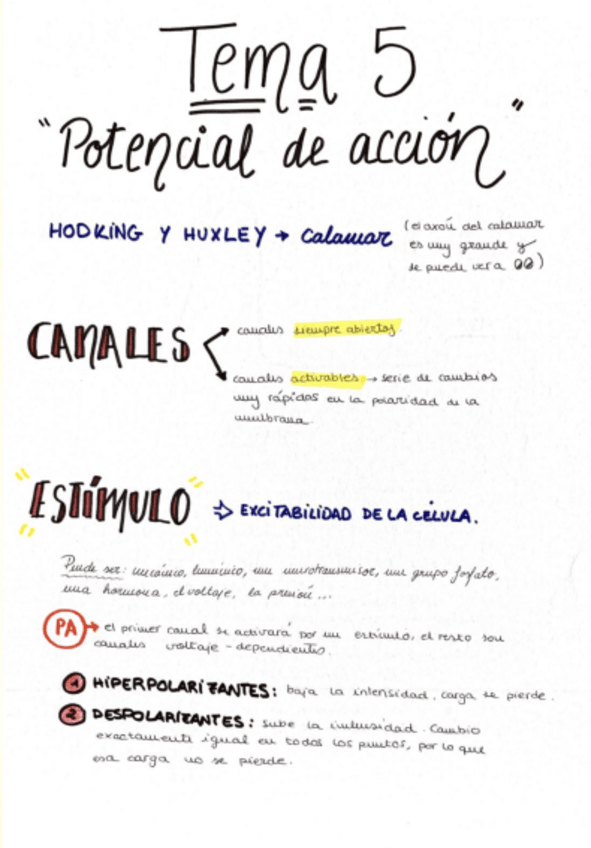 Tema 5
"Potencial de acción"
HODKING Y HUXLEY → Calamar (el axón del calamar
es muy grande y
se puede ver a 👀)
CANALES
canales siempre abiertos.
canales activables → serie de cambios
muy rápidos en la polaridad de la
membrana.
ESTÍMULO ⇒ EXCITABILIDAD DE LA CÉLULA.
Puede ser: mecánico, lumínico, un neurotransmisor, un grupo fosfato,
una hormona, el voltaje, la presión...
PA → el primer canal se activará por un estímulo, el resto son
canales voltaje-dependientes.
1 HIPERPOLARIZANTES: baja la intensidad, carga se pierde.
2 DESPOLARIZANTES: sube la intensidad. Cambio
exactamente igual en todos los puntos, por lo que
esa carga no se pierde.